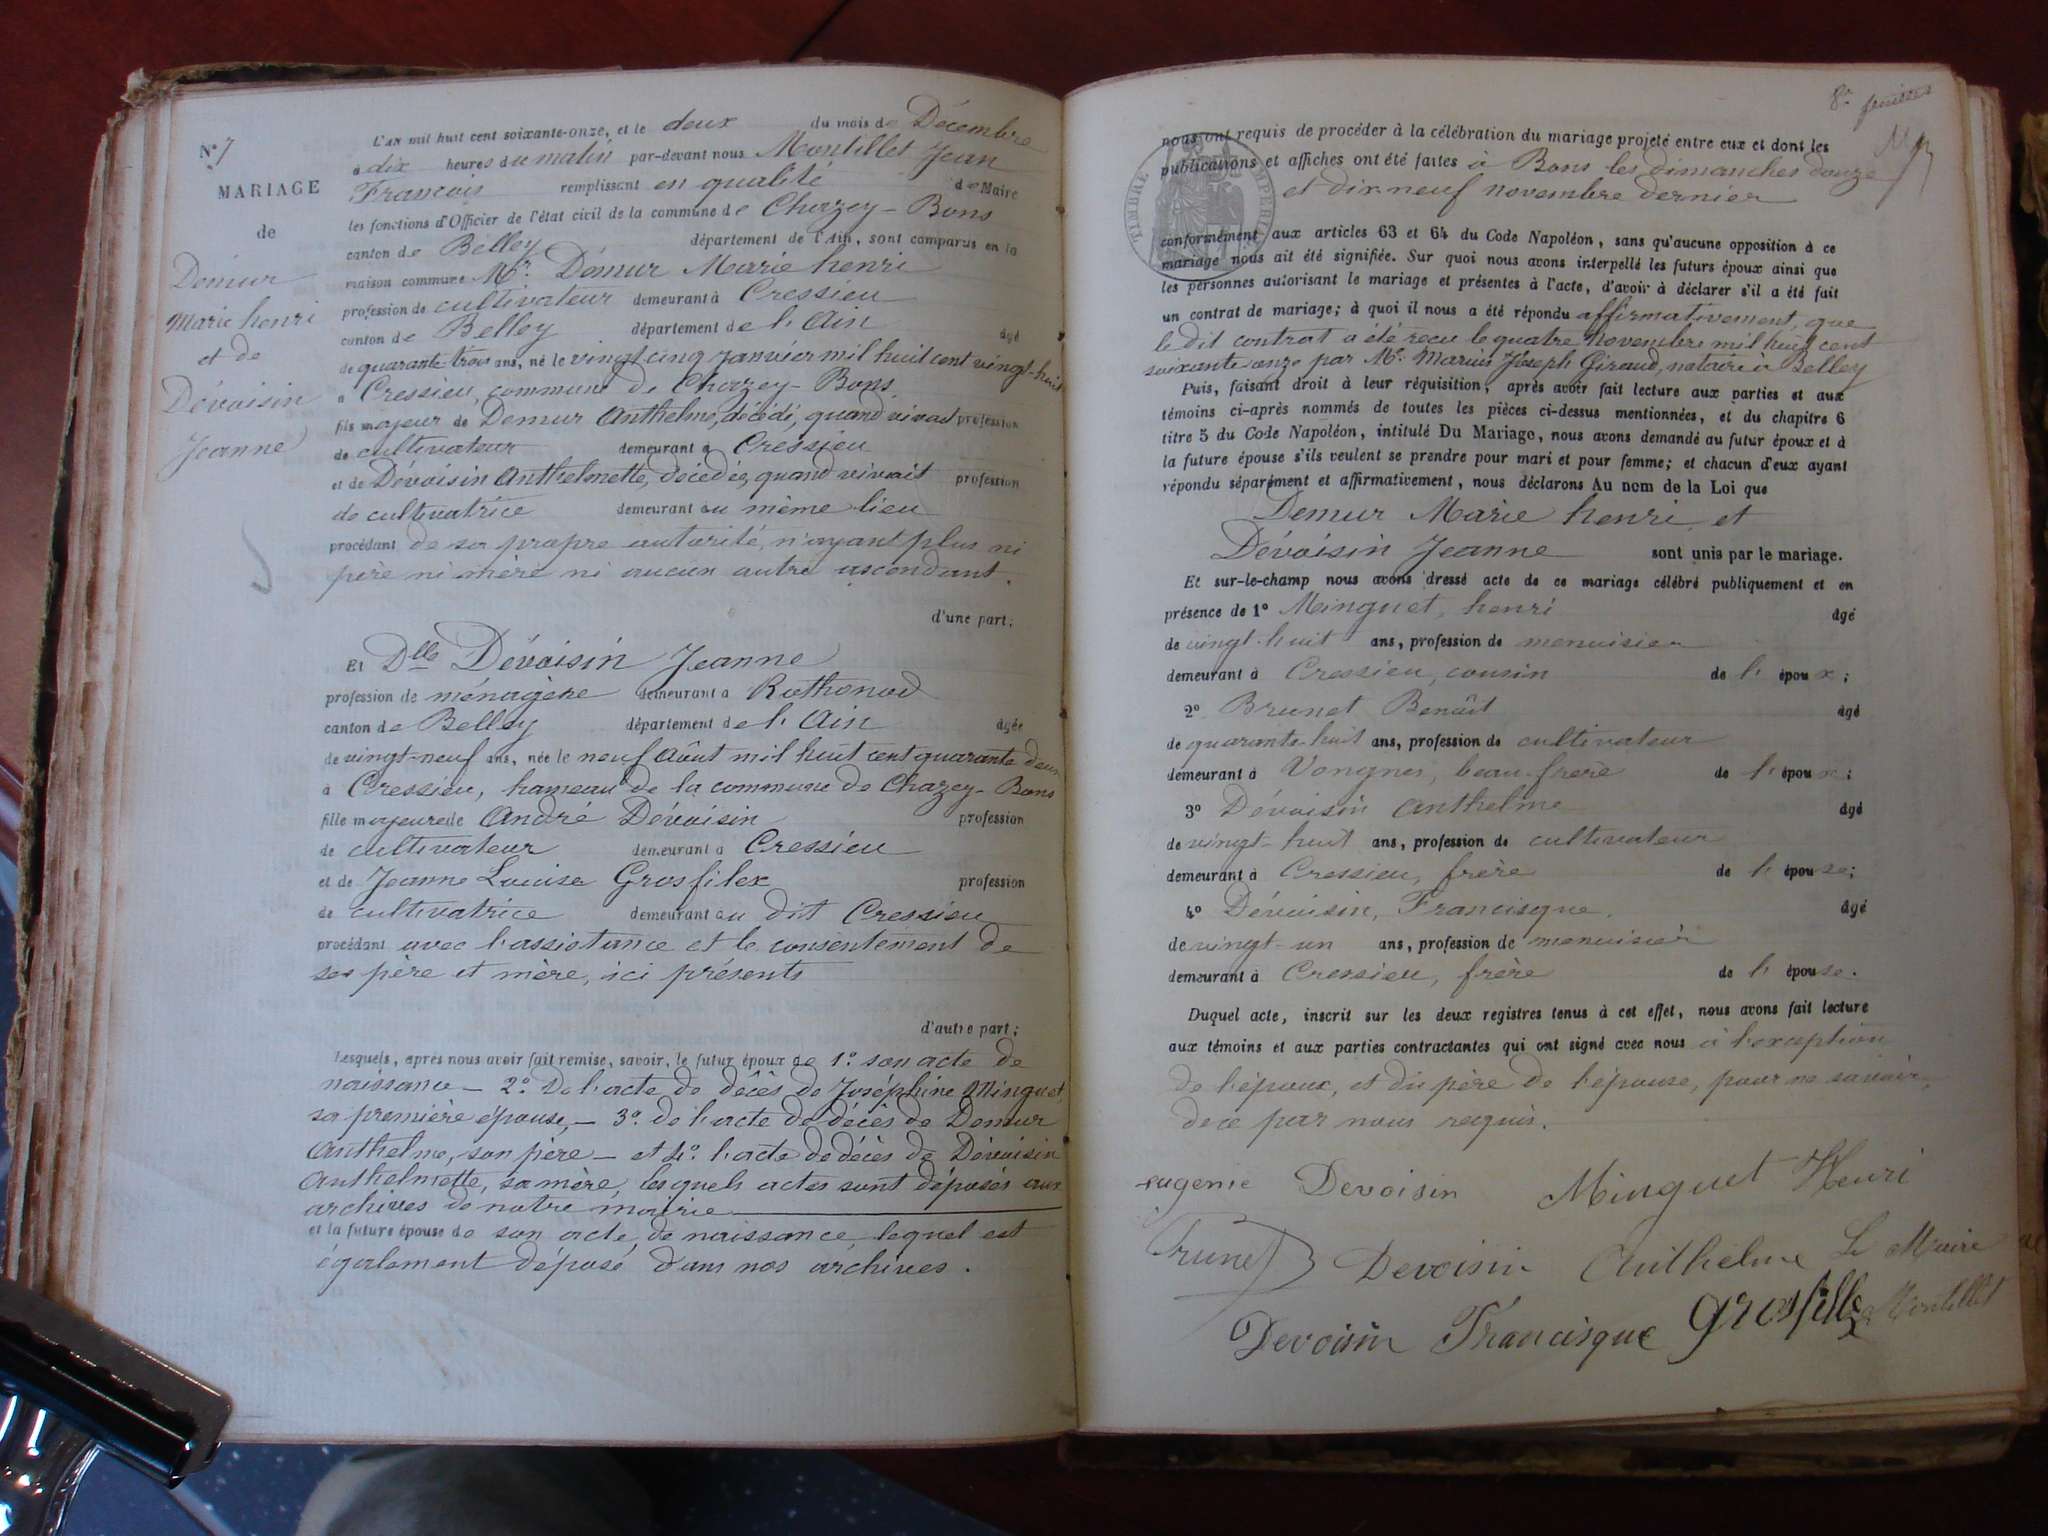 N° 7
MARIAGE
de
Démur
Marie henri
et de
Dévoisin
Jeanne
L'AN mil huit cent soixante-onze, et le deux du mois de Décembre
à dix heures du matin par-devant nous Montillet Jean
François remplissant en qualité de Maire
les fonctions d'Officier de l'état civil de la commune de Chazey-Bons
canton de Belley département de l'Ain, sont comparus en la
maison commune Mr. Démur Marie henri
profession de cultivateur demeurant à Cressieu
canton de Belley département de l'Ain âgé
de quarante-trois ans, né le vingt cinq Janvier mil huit cent vingt-huit
à Cressieu, commune de Chazey-Bons
fils majeur de Demur Anthelme, décédé, quand vivait profession
de cultivateur demeurant à Cressieu
et de Dévoisin Anthelmette, décédée, quand vivait profession
de cultivatrice demeurant au même lieu
procédant de sa propre autorité, n'ayant plus ni
père ni mère ni aucun autre ascendant.
d'une part;
Et Dlle Dévoisin Jeanne
profession de ménagère demeurant à Rothonod
canton de Belley département de l'Ain âgée
de vingt-neuf ans, née le neuf Août mil huit cent quarante deux
à Cressieu, hameau de la commune de Chazey-Bons
fille majeure de André Dévoisin profession
de cultivateur demeurant à Cressieu
et de Jeanne Louise Grosfilex profession
de cultivatrice demeurant au dit Cressieu
procédant avec l'assistance et le consentement de
ses père et mère, ici présents
d'autre part;
Lesquels, après nous avoir fait remise, savoir, le futur époux de 1° son acte de
naissance - 2° De l'acte de décès de Joséphine Minguet,
sa première épouse, - 3° de l'acte de décès de Demur
Anthelme, son père - et 4° l'acte de décès de Dévoisin
Anthelmette, sa mère, lesquels actes sont déposés aux
archives de notre mairie
et la future épouse de son acte de naissance, lequel est
également déposé dans nos archives.
8e
TIMBRE IMPERIAL
nous ont requis de procéder à la célébration du mariage projeté entre eux et dont les
publications et affiches ont été faites à Bons les dimanches douze
et dix-neuf novembre dernier
conformément aux articles 63 et 64 du Code Napoléon, sans qu'aucune opposition à ce
mariage nous ait été signifiée. Sur quoi nous avons interpellé les futurs époux ainsi que
les personnes autorisant le mariage et présentes à l'acte, d'avoir à déclarer s'il a été fait
un contrat de mariage; à quoi il nous a été répondu affirmativement, que
le dit contrat a été reçu le quatre Novembre mil huit cent
soixante-onze par Me. Marius Joseph Giraud, notaire à Belley
Puis, faisant droit à leur réquisition, après avoir fait lecture aux parties et aux
témoins ci-après nommés de toutes les pièces ci-dessus mentionnées, et du chapitre 6
titre 5 du Code Napoléon, intitulé Du Mariage, nous avons demandé au futur époux et à
la future épouse s'ils veulent se prendre pour mari et pour femme; et chacun d'eux ayant
répondu séparément et affirmativement, nous déclarons Au nom de la Loi que
Demur Marie henri et
Dévoisin Jeanne sont unis par le mariage.
Et sur-le-champ nous avons dressé acte de ce mariage célébré publiquement et en
présence de 1° Minguet, henri âgé
de vingt-huit ans, profession de menuisier
demeurant à Cressieu, cousin de l'époux;
2° Brunet Benoît âgé
de quarante-huit ans, profession de cultivateur
demeurant à Vongnes, beau-frère de l'époux;
3° Dévoisin Anthelme âgé
de vingt-huit ans, profession de cultivateur
demeurant à Cressieu, frère de l'épouse;
4° Dévoisin, Francisque. âgé
de vingt-un ans, profession de menuisier
demeurant à Cressieu, frère de l'épouse.
Duquel acte, inscrit sur les deux registres tenus à cet effet, nous avons fait lecture
aux témoins et aux parties contractantes qui ont signé avec nous à l'exception
de l'époux, et du père de l'épouse, pour ne savoir,
de ce par nous requis.
eugenie Devoisin Minguet Henri
Brunet Devoisin Anthelme Le Maire
Devoisin Francisque grosfillex Montillet